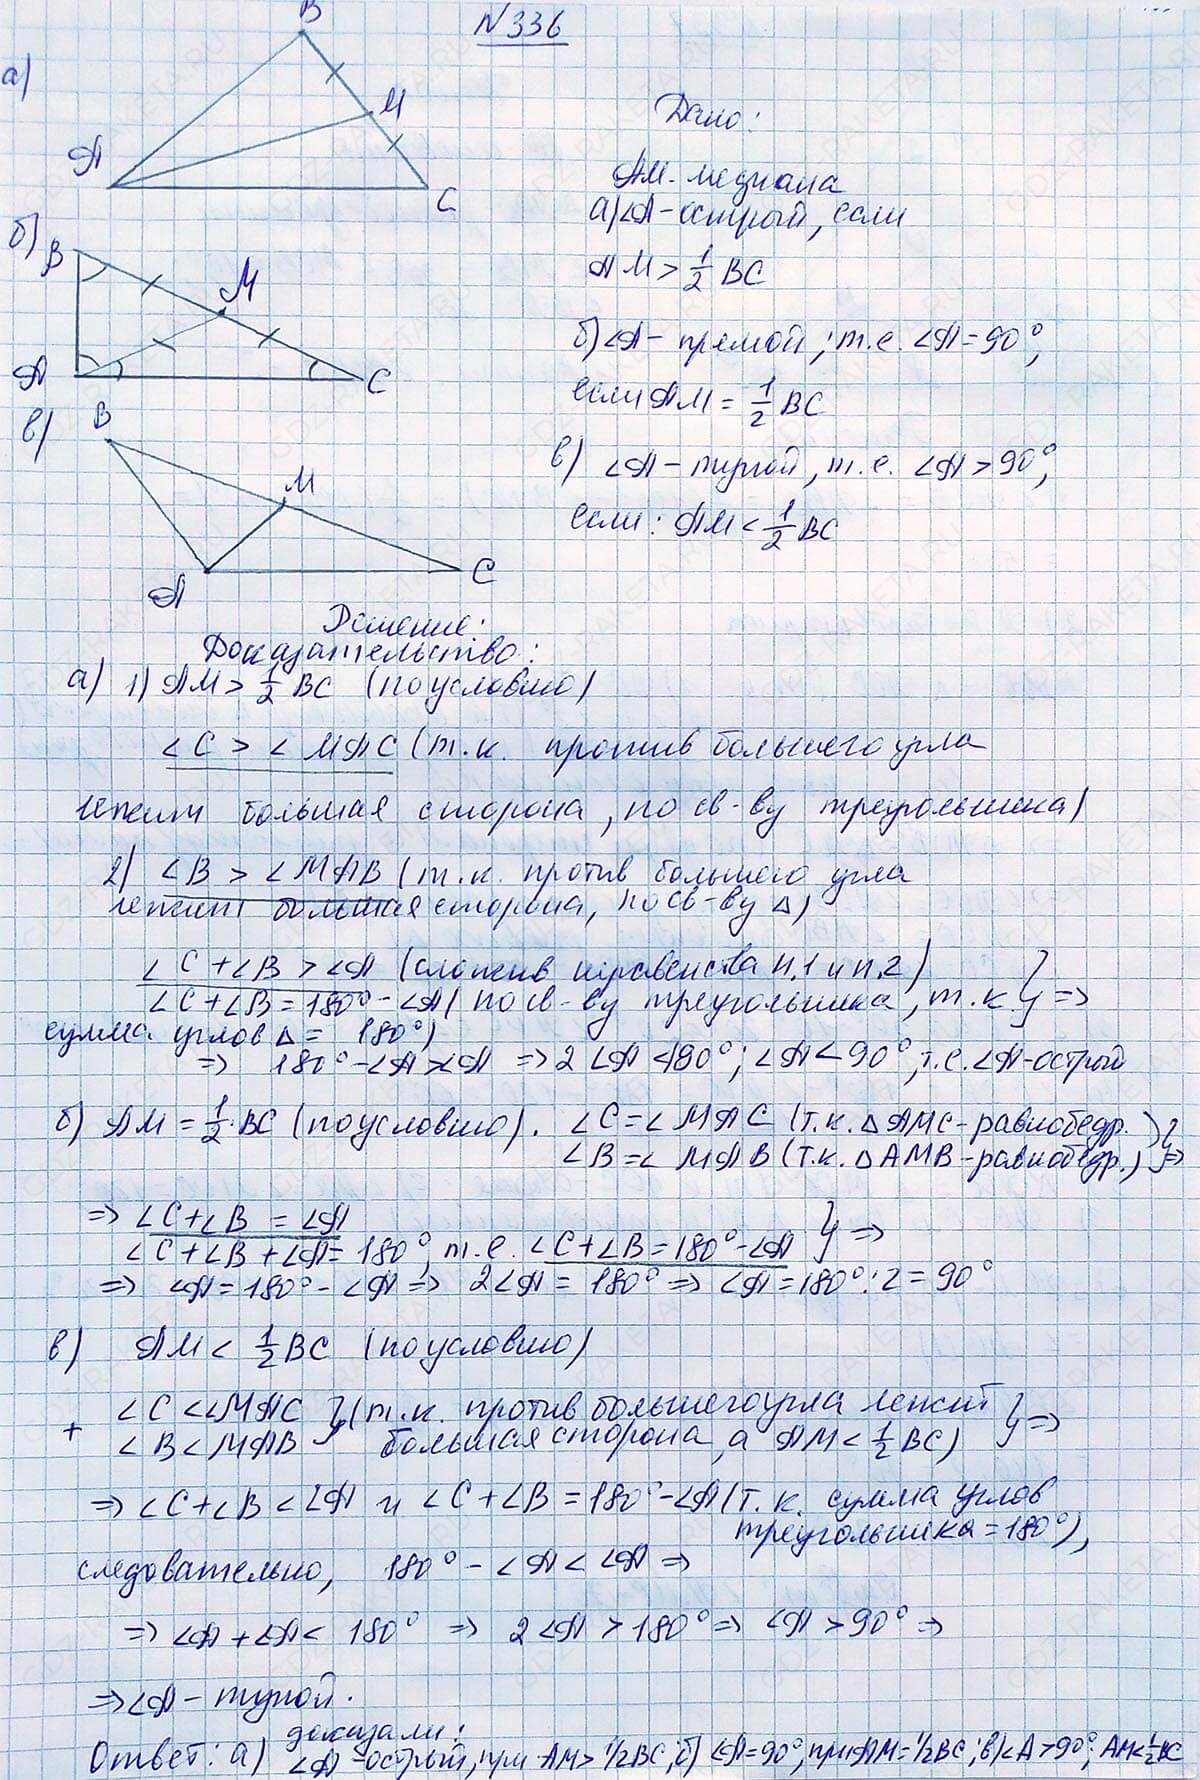 N336
а)
B
M
A
C
Дано:
AM - медиана
а) ∠A - острый, если
AM > 1/2 BC
б)
B
M
A
C
б) ∠A - прямой, т.е. ∠A = 90°,
если AM = 1/2 BC
в)
B
M
A
C
в) ∠A - тупой, т.е. ∠A > 90°,
если: AM < 1/2 BC
Решение:
Доказательство:
а) 1) AM > 1/2 BC (по условию)
∠C > ∠MAC (т.к. против большего угла
лежит большая сторона, по св-ву треугольника)
2) ∠B > ∠MAB (т.к. против большего угла
лежит большая сторона, по св-ву △)
∠C + ∠B > ∠A (сложив неравенства п.1 и п.2)
∠C + ∠B = 180° - ∠A (по св-ву треугольника, т.к. } =>
сумма углов △ = 180°)
=> 180° - ∠A > ∠A => 2∠A < 180°; ∠A < 90°, т.е. ∠A - острый
б) AM = 1/2 BC (по условию). ∠C = ∠MAC (т.к. △AMC - равнобедр.)
∠B = ∠MAB (т.к. △AMB - равнобедр.) } =>
=> ∠C + ∠B = ∠A
∠C + ∠B + ∠A = 180°, т.е. ∠C + ∠B = 180° - ∠A } =>
=> ∠A = 180° - ∠A => 2∠A = 180° => ∠A = 180° : 2 = 90°
в) AM < 1/2 BC (по условию)
∠C < ∠MAC } (т.к. против большего угла лежит
+ ∠B < MAB большая сторона, а AM < 1/2 BC) } =>
=> ∠C + ∠B < ∠A и ∠C + ∠B = 180° - ∠A (т.к. сумма углов
треугольника = 180°),
следовательно, 180° - ∠A < ∠A =>
=> ∠A + ∠A < 180° => 2∠A > 180° => ∠A > 90° =>
=> ∠A - тупой.
доказали:
Ответ: а) ∠A - острый, при AM > 1/2 BC; б) ∠A = 90°, при AM = 1/2 BC; в) ∠A > 90°; AM < 1/2 BC